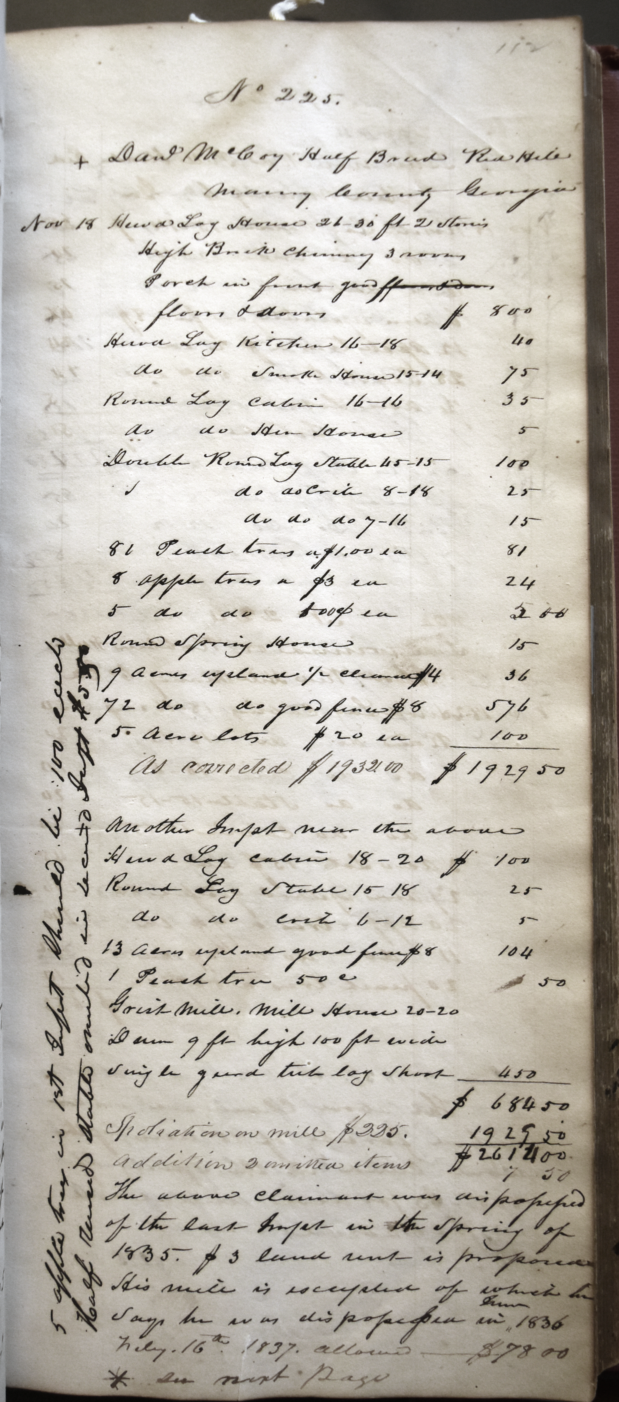 112
No 225.
+ David McCoy Half Breed Red Hill
Murry County Georgia
Nov 18 Hewd Log House 26-30 ft 2 Stories
High Brick Chimney 3 rooms
Porch in front good
floors & doors $ 800
Hewd Log Kitchen 16-18 40
do do Smoke House 15-14 75
Round Log Cabin 16-16 35
do do Hen House 5
Double Round Log Stable 45-15 100
do do Crib 8-18 25
do do do 7-16 15
81 Peach trees a $1.00 ea 81
8 apple trees a $3 ea 24
5 do do 50¢ ea 2 50
Round Spring House 15
9 Acres upland 1/2 cleared $4 36
72 do do good fence $8 576
5 Acre lots $20 ea 100
As corrected $1932 00 $1929 50
Another Impt near the above
Hewd Log cabin 18-20 $ 100
Round Log Stable 15 18 25
do do crib 6-12 5
13 Acres upland good fence $8 104
1 Peach tree 50c 50
Grist Mill. Mill House 20-20
Dam 9 ft high 100 ft wide
Single geerd tub log short 450
$ 684 50
Spoliation on mill $225. 1929 50
$2614 00
Addition 2 omitted items 7 50
The above claimant was dispossessed
of the last Impt in the Spring of
1835. $3 land rent is proposed
His mill is excepted of which he
Says he was dispossessed in June 1836
Feby. 16th 1837. allowed $78 00
* see next Page
5 apple trees in 1st Impt Should be 100 each
Half raised stable omitted in second Impt $5.00